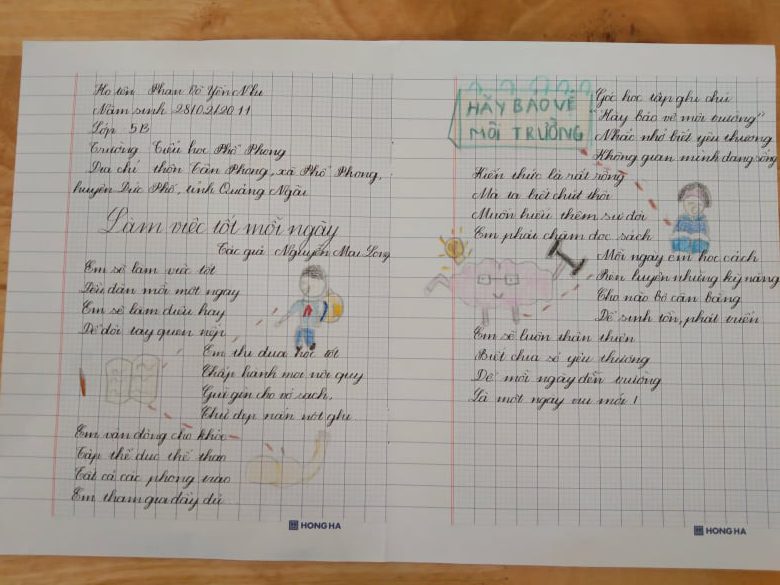 Họ tên Phan Võ Yến Nhi
Năm sinh 28/02/2011
Lớp 5B
Trường Tiểu học Phổ Phong
Địa chỉ thôn Tân Phong, xã Phổ Phong,
huyện Đức Phổ, tỉnh Quảng Ngãi
Làm việc tốt mỗi ngày
Tác giả Nguyễn Mai Long
Em sẽ làm việc tốt
Đều đặn mỗi một ngày
Em sẽ làm điều hay
Để đôi tay quen nếp
Em thi đua học tốt
Chấp hành mọi nội quy
Giữ gìn cho vở sạch,
Chữ đẹp nắn nót ghi
Em vận động cho khỏe
Tập thể dục thể thao
Tất cả các phong trào
Em tham gia đầy đủ
HONG HA
HÃY BẢO VỆ
MÔI TRƯỜNG
Góc học tập ghi chú
"Hãy bảo vệ môi trường"
Nhắc nhở biết yêu thương
Không gian mình đang sống
Kiến thức là rất rộng
Mà ta biết chút thôi
Muốn hiểu thêm sự đời
Em phải chăm đọc sách
Mỗi ngày em học cách
Rèn luyện những kỹ năng
Cho não bộ cân bằng
Để sinh tồn, phát triển
Em sẽ luôn thân thiện
Biết chia sẻ yêu thương
Để mỗi ngày đến trường
Là một ngày vui mới!
HONG HA